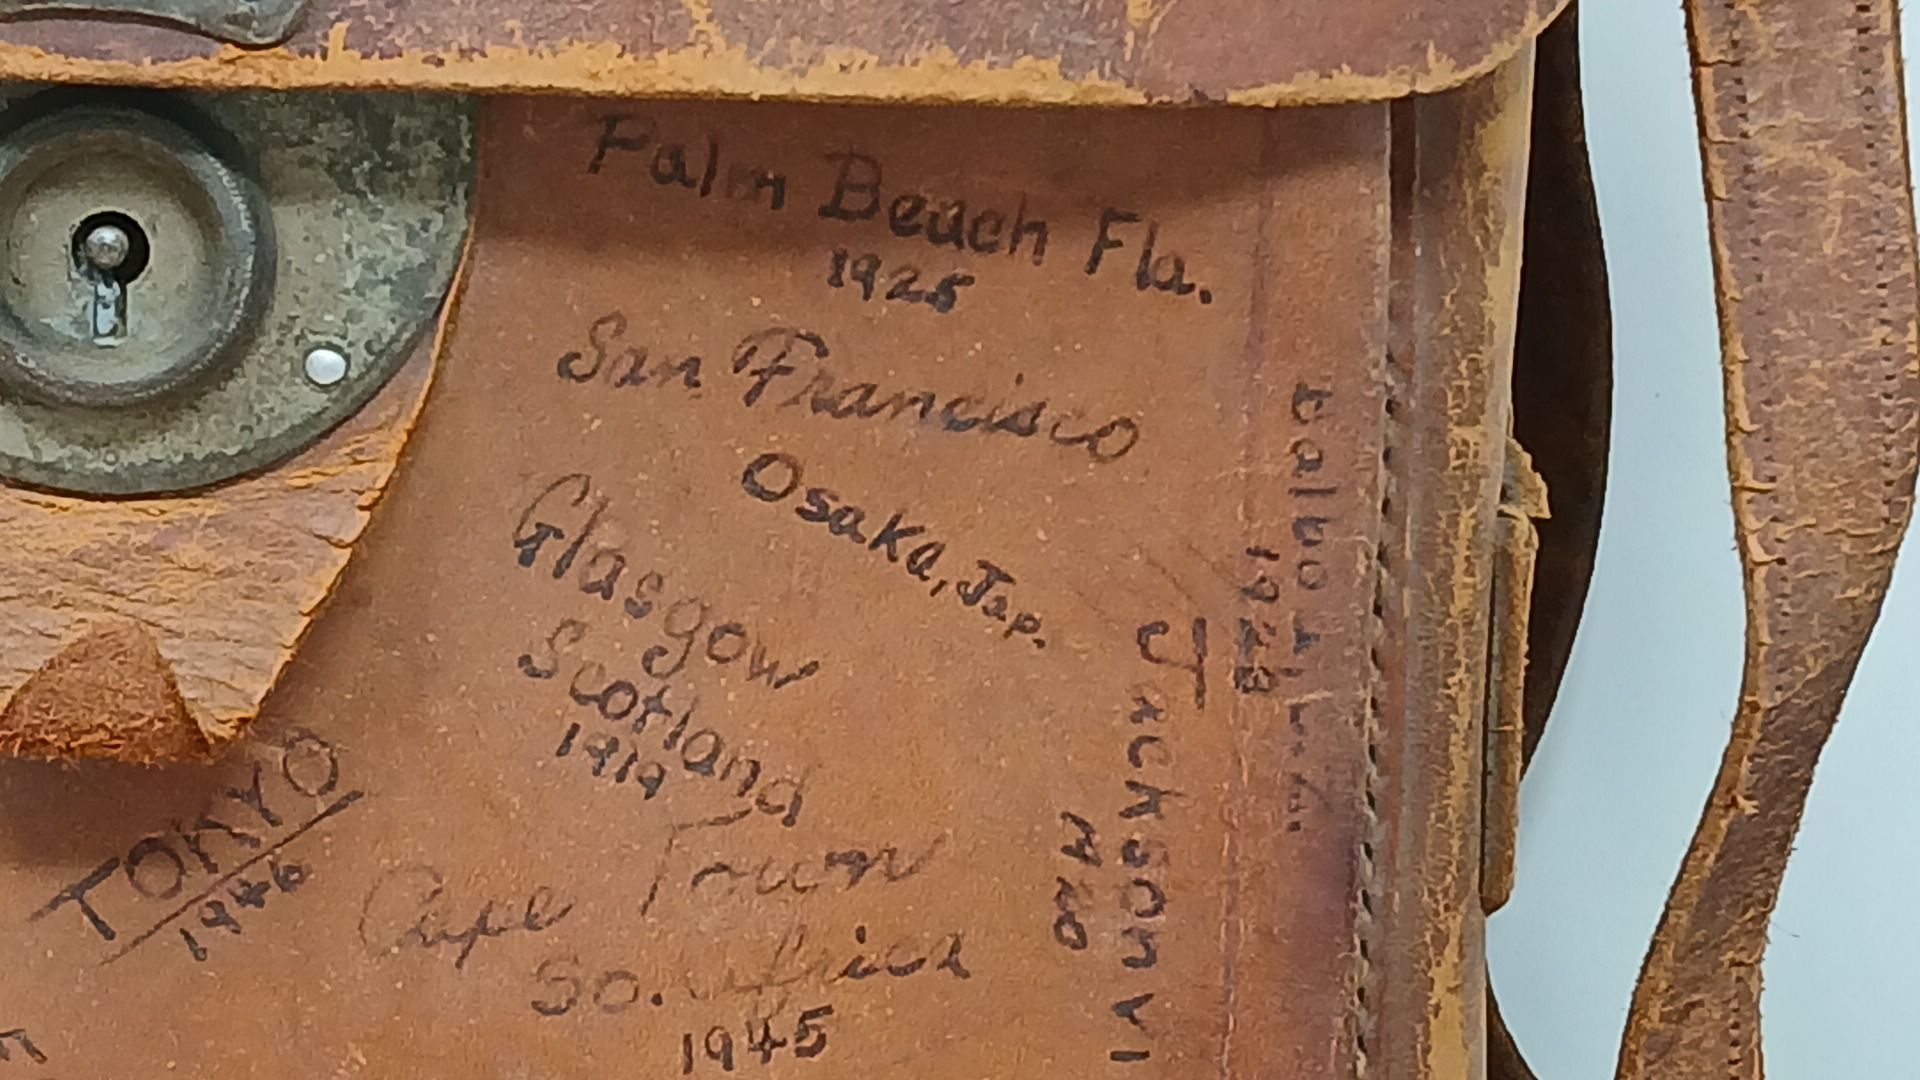 Palm Beach Fla.
1925
San Francisco
Osaka, Jap.
Glasgow
Scotland
1919
TOKYO
1946
Cape Town
So. Africa
1945
Jacksonvi
Balboa